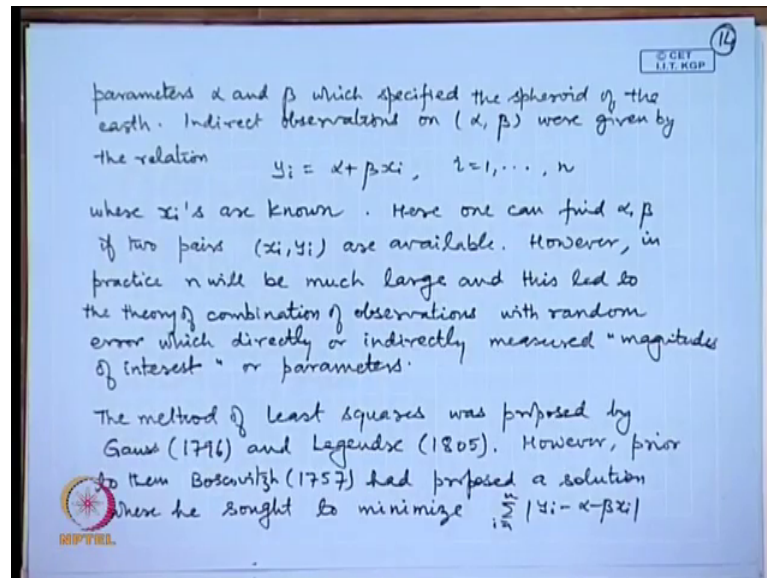 14
© CET
I.I.T. KGP
parameters α and β which specified the spheroid of the
earth. Indirect observations on (α, β) were given by
the relation
yi = α + βxi, i = 1, ..., n
where xi's are known. Here one can find α, β
if two pairs (xi, yi) are available. However, in
practice n will be much large and this led to
the theory of combination of observations with random
error which directly or indirectly measured "magitudes
of interest" or parameters.
The method of least squares was proposed by
Gauss (1796) and Legendre (1805). However, prior
to them Boscovitzh (1757) had proposed a solution
where he sought to minimize ∑_{i=1}^{n} |yi - α - βxi|
NPTEL